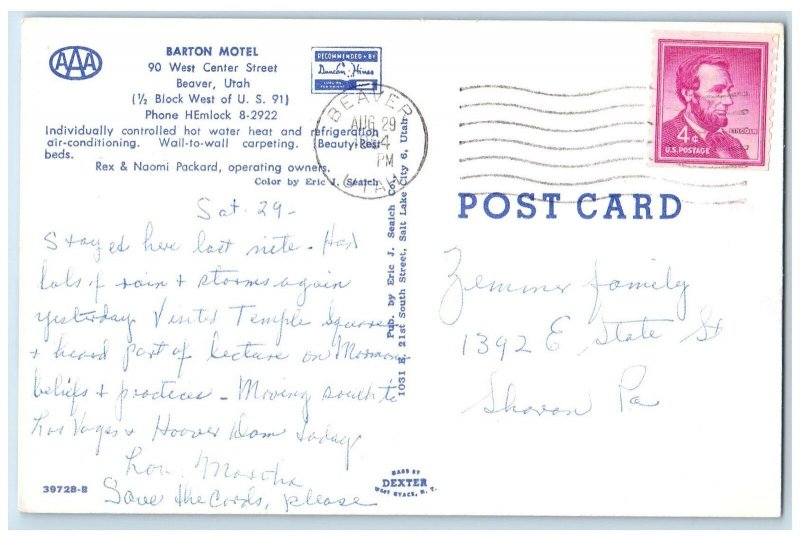 AAA
BARTON MOTEL
90 West Center Street
Beaver, Utah
(½ Block West of U. S. 91)
Phone HEmlock 8-2922
Individually controlled hot water heat and refrigeration
air-conditioning. Wall-to-wall carpeting. (Beauty Rest
beds.
Rex & Naomi Packard, operating owners.
Color by Eric J. Seaich
RECOMMENDED BY
Duncan Hines
BEAVER
AUG 29
PM
UTAH
4¢
LINCOLN
U.S. POSTAGE
Sat. 29-
Stayed here last nite - Had
lots of rain & storms again
yesterday. Visited Temple Square
& heard part of lecture on Mormon
beliefs & practices - Moving south to
Las Vegas & Hoover Dam today
Love Martha
Save the cards, please
Pub. by Eric J. Seaich Co.,
1031 E. 21st South Street, Salt Lake City 6, Utah
POST CARD
Zemmer family
1392 E State St
Sharon Pa
39728-B
MADE BY
DEXTER
WEST NYACK, N. Y.